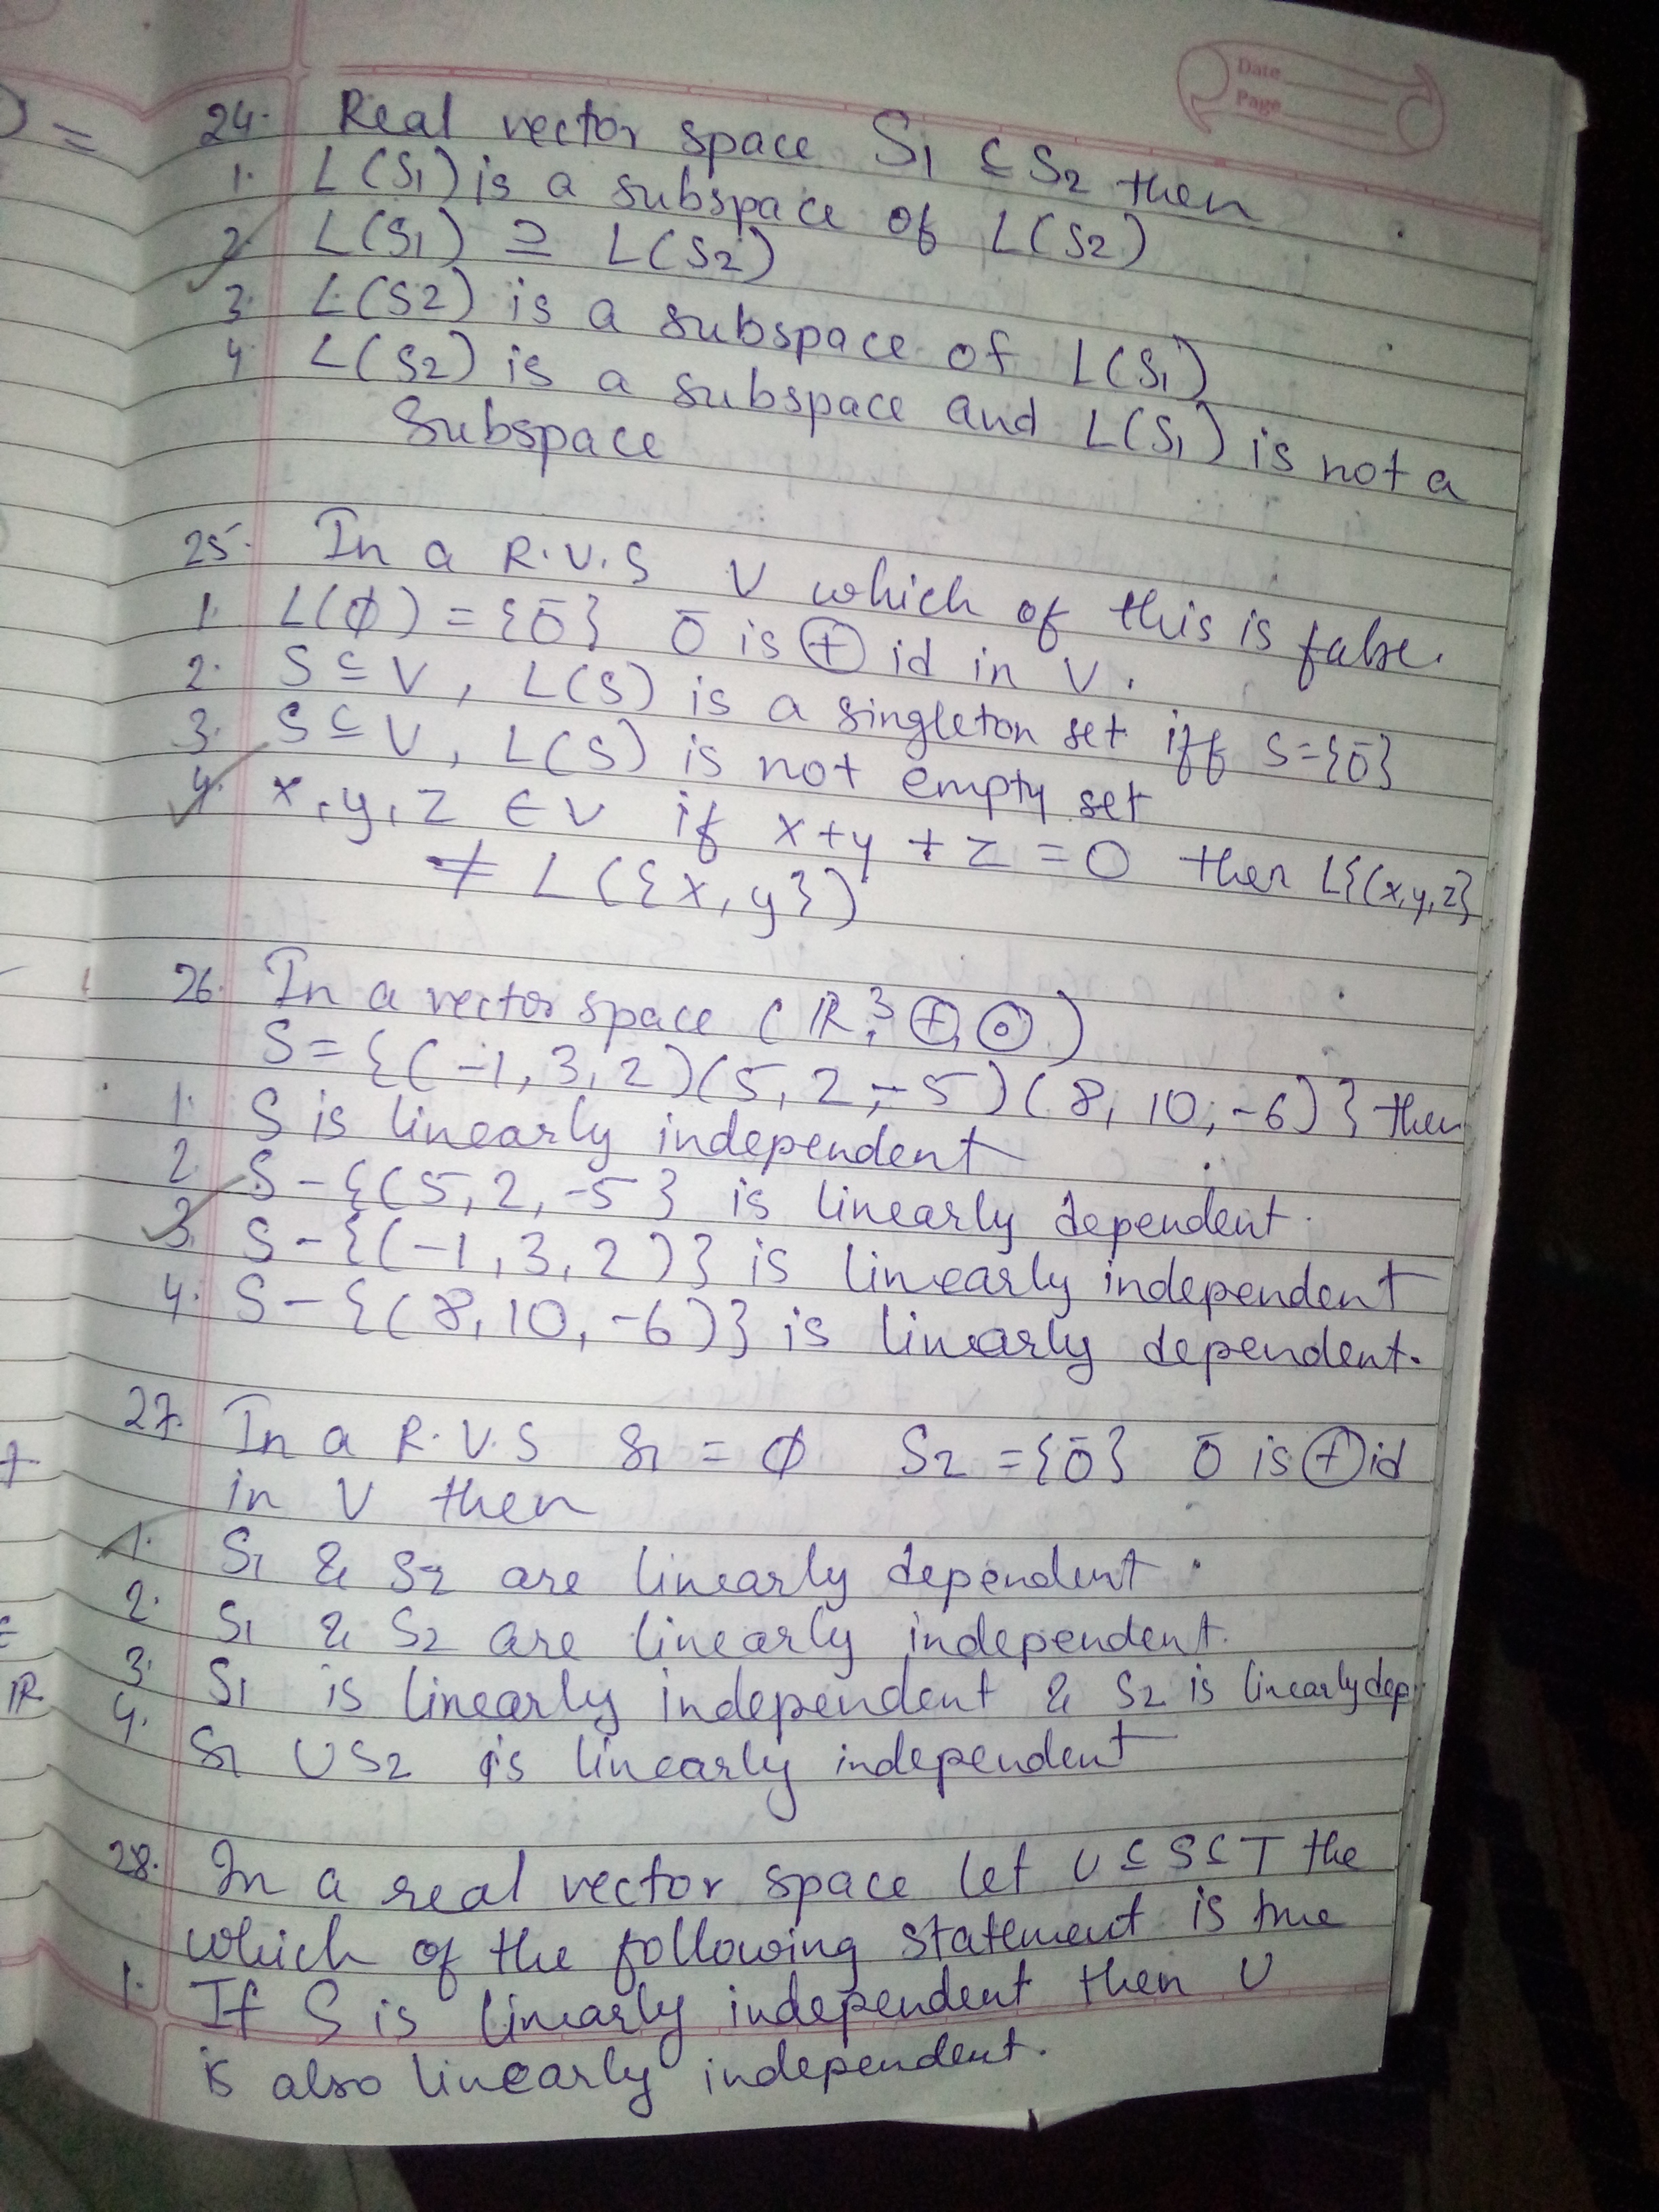 Date
Page
24. Real vector space S1 ⊆ S2 then
1. L(S1) is a subspace of L(S2)
2. L(S1) ⊇ L(S2)
3. L(S2) is a subspace of L(S1)
4. L(S2) is a subspace and L(S1) is not a
Subspace
25. In a R.V.S V which of this is false.
1. L(φ) = {ō} ō is ⊕ id in V.
2. S ⊆ V, L(S) is a singleton set iff S={ō}
3. S ⊆ V, L(S) is not empty set
4. x, y, z ∈ V if x+y+z = 0 then L{(x,y,z}
≠ L({x, y})
26. In a vector space (R³, ⊕, ⊙)
S = {(-1, 3, 2)(5, 2, -5)(8, 10, -6)} then
1. S is linearly independent
2. S-{(5, 2, -5} is linearly dependent.
3. S-{(-1, 3, 2)} is linearly independent
4. S-{(8, 10, -6)} is linearly dependent.
27. In a R.V.S S1 = φ S2 = {ō} ō is ⊕ id
in V then
1. S1 & S2 are linearly dependent.
2. S1 & S2 are linearly independent.
3. S1 is linearly independent & S2 is linearly dep.
4. S1 ∪ S2 is linearly independent
28. In a real vector space let U ⊆ S ⊆ T the
which of the following statement is true
1. If S is linearly independent then U
is also linearly independent.